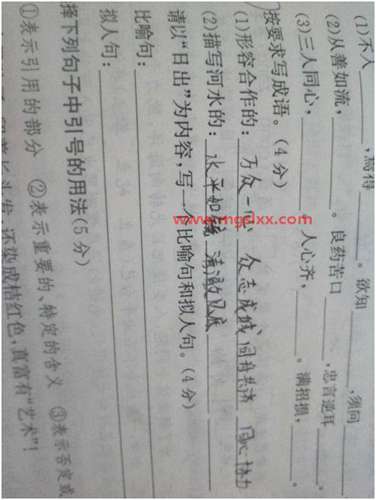 (1)不入______,焉得______。欲知______,须问______
(2)从善如流,______。良药苦口______,忠言逆耳______。
(3)三人同心,______人心齐,______。满招损,______。
按要求写成语。(4分)
(1)形容合作的: 万众一心 众志成城 同舟共济 同心协力
(2)描写河水的: 水平如镜 清澈见底
请以“日出”为内容,写一个比喻句和拟人句。(4分)
比喻句:
拟人句:
择下列句子中引号的用法(5分)
①表示引用的部分 ②表示重要的、特定的含义 ③表示否定或
头发,还染成桔红色,真富有“艺术”!